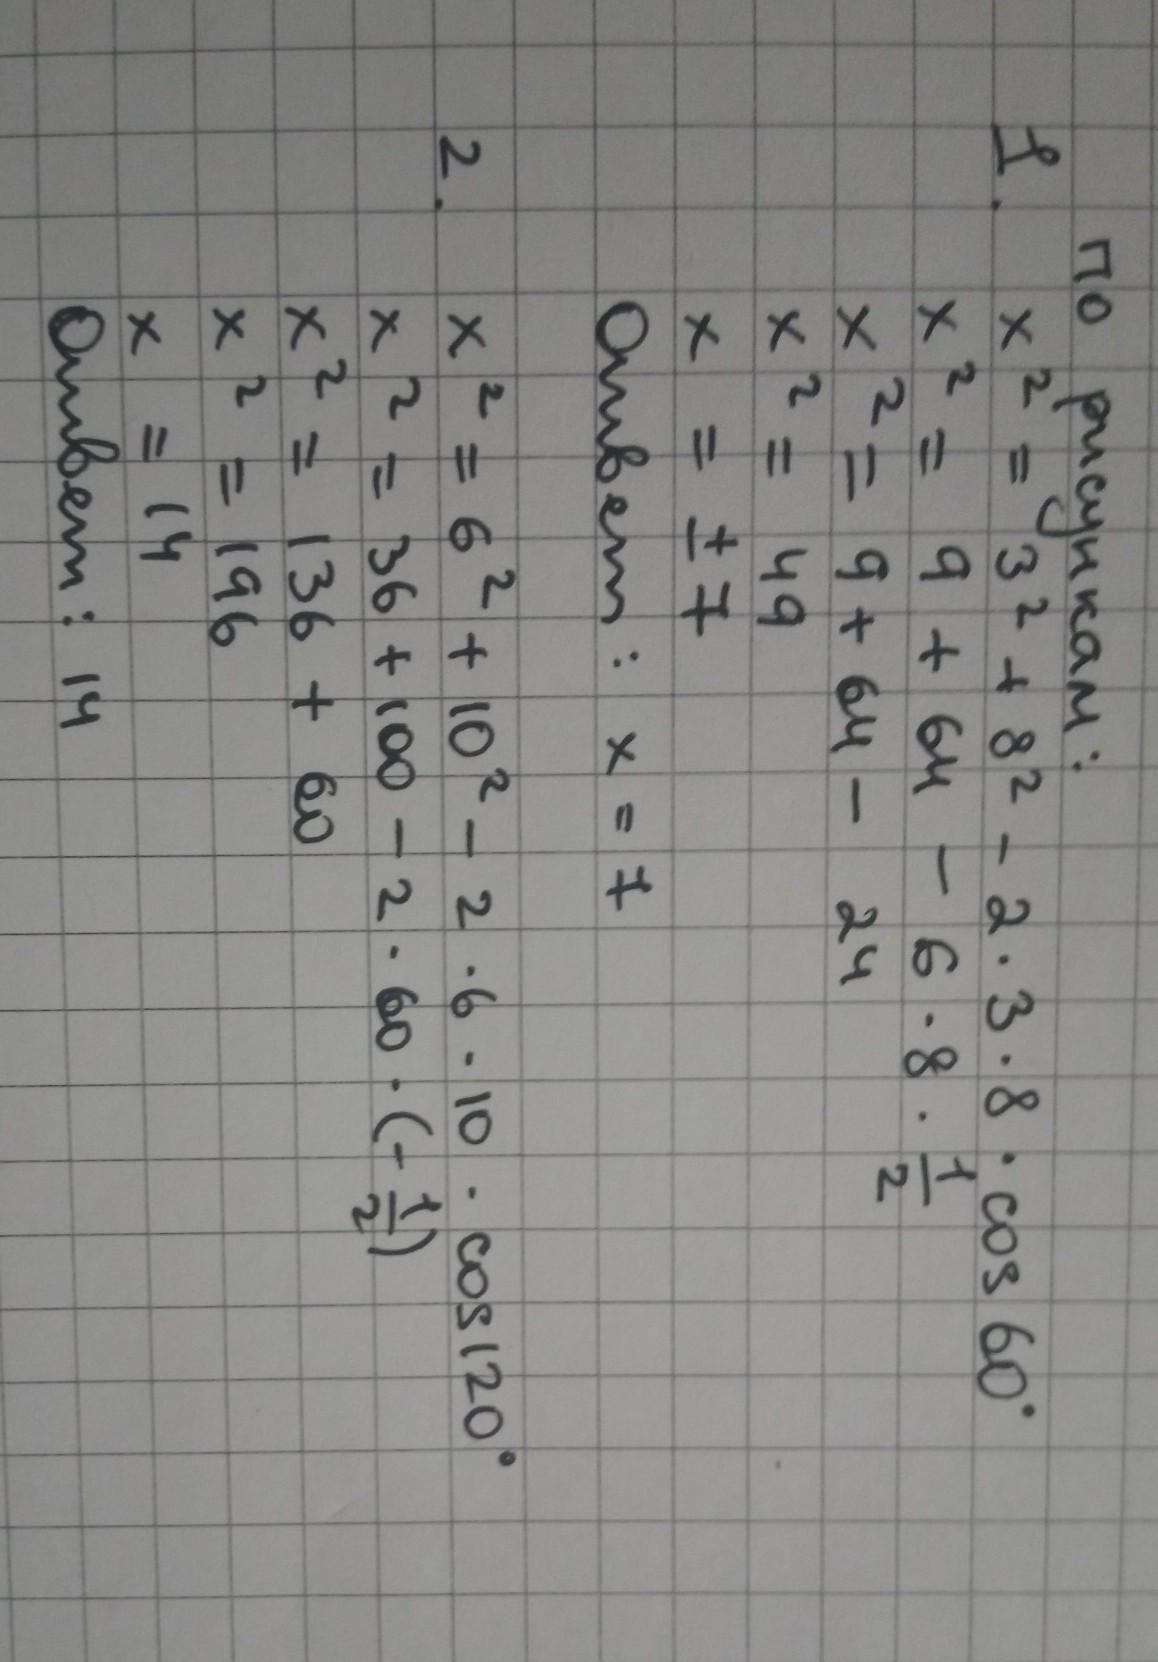 По рисункам:
1. x² = 3² + 8² - 2 · 3 · 8 · cos 60°
x² = 9 + 64 - 6 · 8 · 1/2
x² = 9 + 64 - 24
x² = 49
x = ± 7
Ответ: x = 7
2. x² = 6² + 10² - 2 · 6 · 10 · cos 120°
x² = 36 + 100 - 2 · 60 · (- 1/2)
x² = 136 + 60
x² = 196
x = 14
Ответ: 14